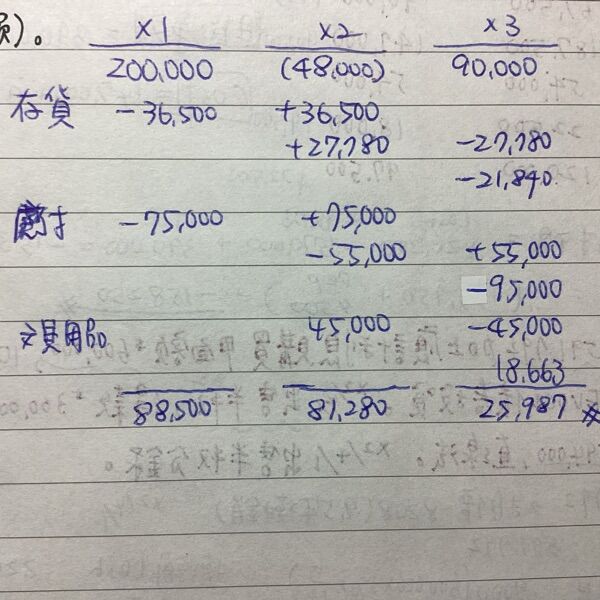 損)。
X1 X2 X3
200,000 (48,000) 90,000
存貨 -36,500 +36,500
+27,780 -27,780
-21,840
應付 -75,000 +75,000
-55,000 +55,000
-95,000
文具用品 45,000 -45,000
18,663
88,500 81,280 25,987 #